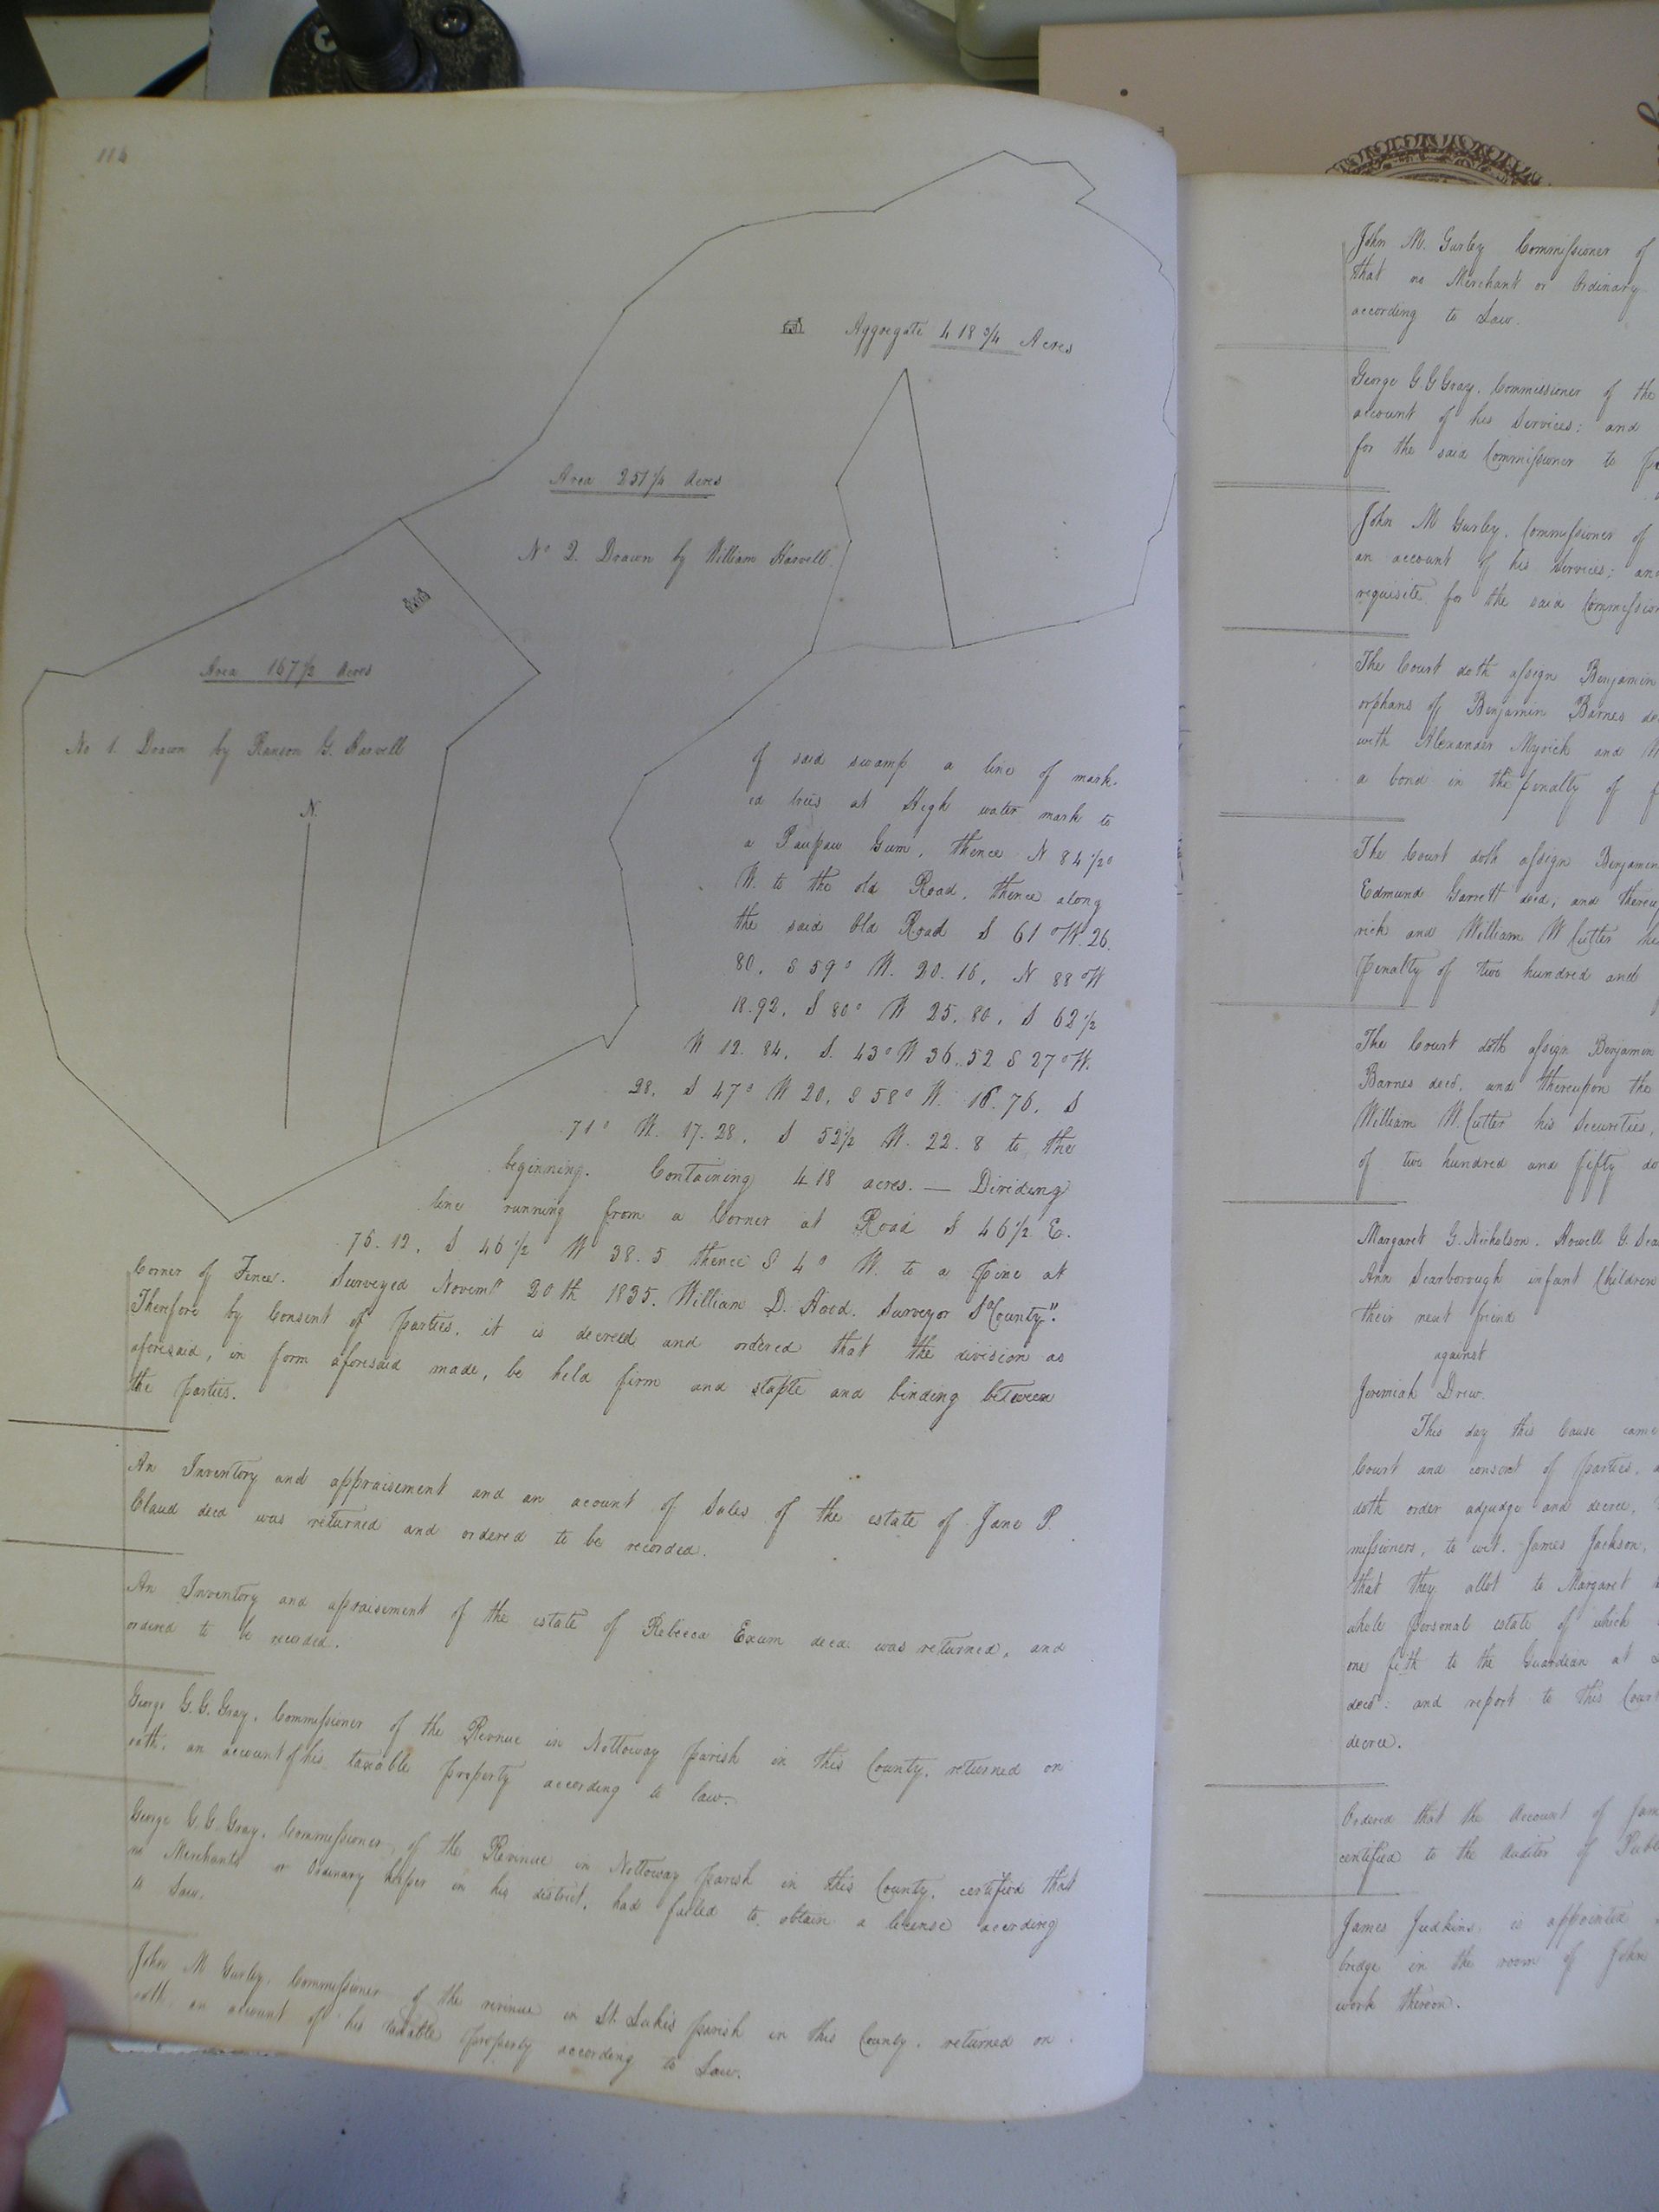 114
Aggregate 418 3/4 Acres
Area 251 1/4 Acres
No 2. Drawn by William Harvell.
Area 167 1/2 Acres
No 1. Drawn by Ransom G. Harvell
N.
of said swamp a line of mark-
ed trees at High water mark to
a Paupaw Gum, thence N 84 1/2°
W. to the old Road, thence along
the said Old Road S 61° W. 26.
80, S 59° W. 20. 16, N 88° W
18.92, S 80° W 25. 80, S 62 1/2
W 12. 84, S. 43° W 36. 52 S 27° W.
28, S 47° W 20, S 58° W. 16. 76, S
71° W. 17. 28, S 52 1/2 W. 22. 8 to the
beginning. Containing 418 acres. — Dividing
line running from a Corner at Road S 46 1/2 E.
75. 12, S 46 1/2 W 38. 5 thence S 4° W. to a pine at
Corner of Fence. Surveyed Novemr 20th 1835. William D. Hood. Surveyor So County".
Therefore by Consent of parties, it is decreed and ordered that the division as
aforesaid, in form aforesaid made, be held firm and staple and binding between
the parties.
An Inventory and appraisement and an acount of Sales of the estate of Jane P.
Claud decd was returned and ordered to be recorded.
An Inventory and apraisement of the estate of Rebecca Exum decd was returned, and
ordered to be recorded.
George G. G. Gray, Commissioner of the Revnue in Nottoway parish in this County, returned on
oath, an account of his taxable property according to law.
George G. G. Gray, Commissioner, of the Revinue in Nottoway parish in this County, certified that
no Merchants or Ordinary keeper in his district, had failed to obtain a license acording
to Law.
John M Gurley, Commissioner of the revinue in St. Lukes parish in this County, returned on
oath an account of his taxable property according to Law.
John M. Gurley Commissioner of
that no Merchant or Ordinary
according to Law.
George G G Gray, Commissioner of the
account of his Services: and
for the said Commissioner to
John M Gurley, Commissioner of
an account of his Services; and
requisite for the said Commission
The Court doth assign Benjamin
orphans of Benjamin Barnes
with Alexander Myrick and
a bond in the penalty of
The Court doth assign Benjamin
Edmund Garrett decd, and
rick and William W Cutler
Penalty of two hundred and
The Court doth assign Benjamin
Barnes decd. and thereupon the
William W. Cutler his Securities,
of two hundred and fifty
Margaret G. Nicholson, Howell G.
Ann Scarborough infant Children
their next friend
against
Jeremiah Drew.
This day this Cause came
Court and consent of parties,
doth order adjudge and decree,
missioners, to wit. James Jackson,
that they allot to Margaret
whole personal estate of which
one fifth to the Guardian at
decd: and report to this Court
decree.
Ordered that the Account of
certified to the Auditor of
James Judkins, is appointed
bridge in the room of John
work thereon.